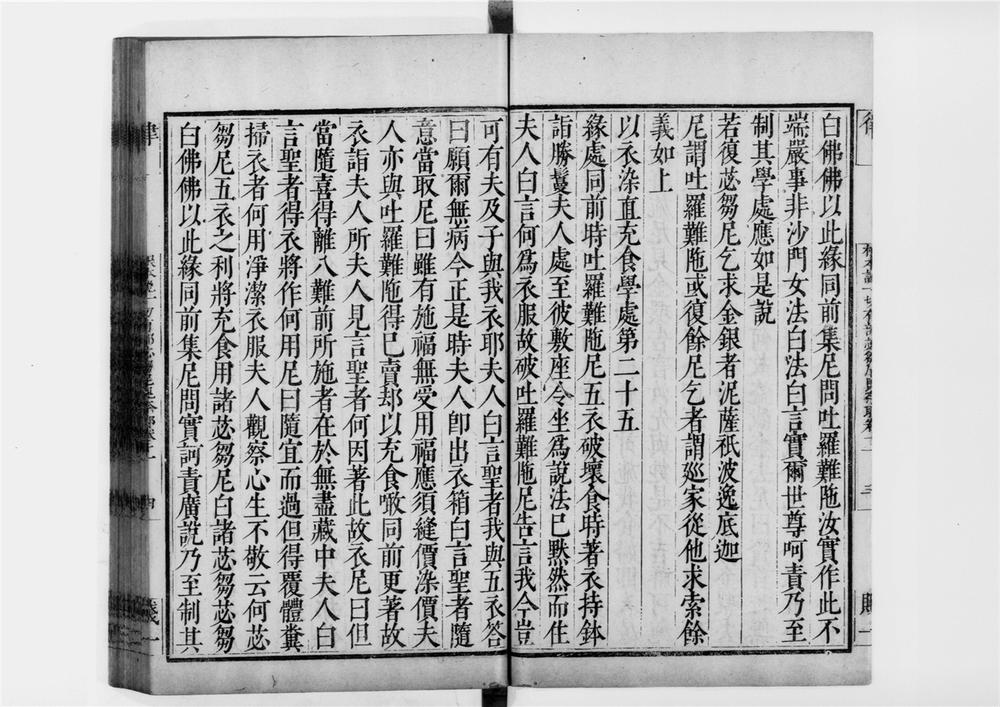 白佛佛以此緣同前集尼問吐羅難陁汝實作此不
端嚴事非沙門女法白法白言實爾世尊呵責乃至
制其學處應如是說
若復苾芻尼乞求金銀者泥薩祇波逸底迦
尼謂吐羅難陁或復餘尼乞者謂廵家從他求索餘
義如上
以衣染直充食學處第二十五
緣處同前時吐羅難陁尼五衣破壞食時著衣持鉢
詣勝鬘夫人處至彼敷座令坐爲說法已默然而住
夫人白言何爲衣服故破吐羅難陁尼告言我今豈
可有夫及子與我衣耶夫人白言聖者我與五衣答
曰願爾無病今正是時夫人卽出衣箱白言聖者隨
意當取尼曰雖有施福無受用福應須縫價染價夫
人亦與吐羅難陁得已賣却以充食噉同前更著故
衣詣夫人所夫人見言聖者何因著此故衣尼曰但
當隨喜得離八難前所施者在於無盡藏中夫人白
言聖者得衣將作何用尼曰隨宜而過但得覆體糞
掃衣者何用淨潔衣服夫人觀察心生不敬云何苾
芻尼五衣之利將充食用諸苾芻尼白諸苾芻苾芻
白佛佛以此緣同前集尼問實訶責廣說乃至制其
律